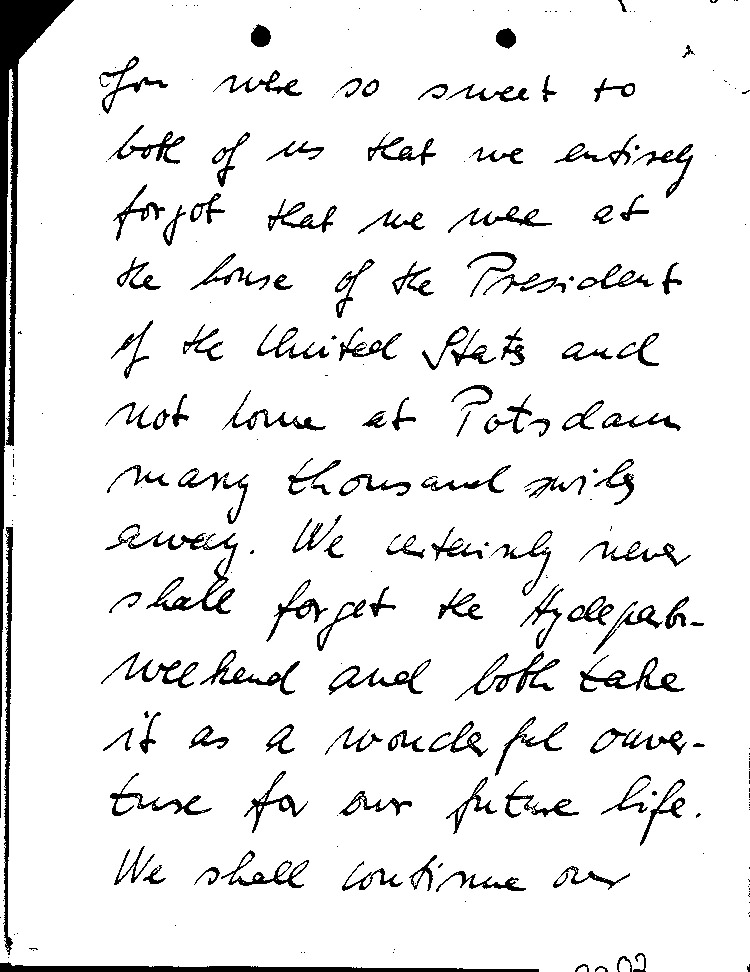 You were so sweet to
both of us that we entirely
forgot that we were at
the house of the President
of the United States and
not home at Potsdam
many thousand miles
away. We certainly never
shall forget the Hydepark-
weekend and both take
it as a wonderful ouver-
ture for our future life.
We shall continue our